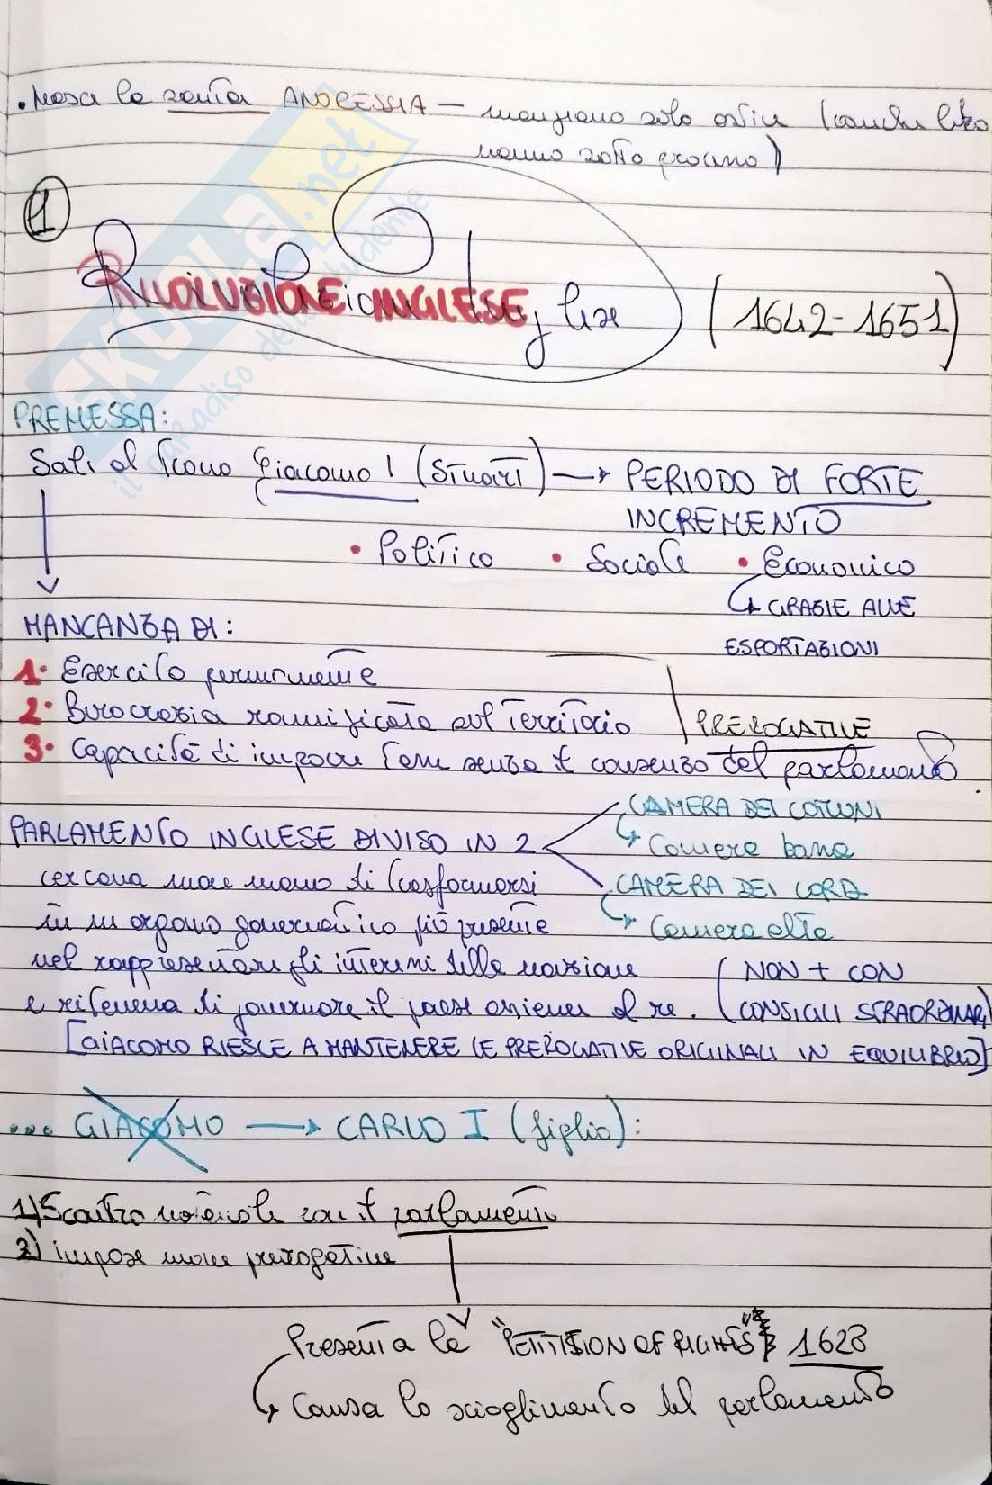 • Nasce la santa ANORESSIA — mangiano solo ostie (
hanno sotto )
1
RIVOLUZIONE INGLESE (1642-1651)
PREMESSA:
Salì al trono Giacomo I (Stuart) → PERIODO DI FORTE
INCREMENTO
• Politico • Sociale • Economico
↳ GRAZIE ALLE
MANCANZA DI:
ESPORTAZIONI
1• Esercito permanente
2• Burocrazia ramificata sul territorio PREROGATIVE
3• Capacità di imporre tasse senza il consenso del parlamento.
CAMERA DEI COMUNI
PARLAMENTO INGLESE DIVISO IN 2
↳ Camera bassa
cercava man mano di trasformarsi CAMERA DEI LORD
in un organo governativo più presente ↳ Camera alta
nel rappresentare gli interessi della nazione (NON + CON
e riteneva di governare il paese assieme al re. CONSIGLI STRAORDINARI)
[GIACOMO RIESCE A MANTENERE LE PREROGATIVE ORIGINALI IN EQUILIBRIO]
... GIACOMO → CARLO I (figlio):
1) Scontro notevole con il parlamento
2) impose nuove prerogative
Presenta la "PETITISION OF RIGHTS" 1628
↳ Causa lo scioglimento del parlamento
SKUOLA.net
il paradiso dello studente